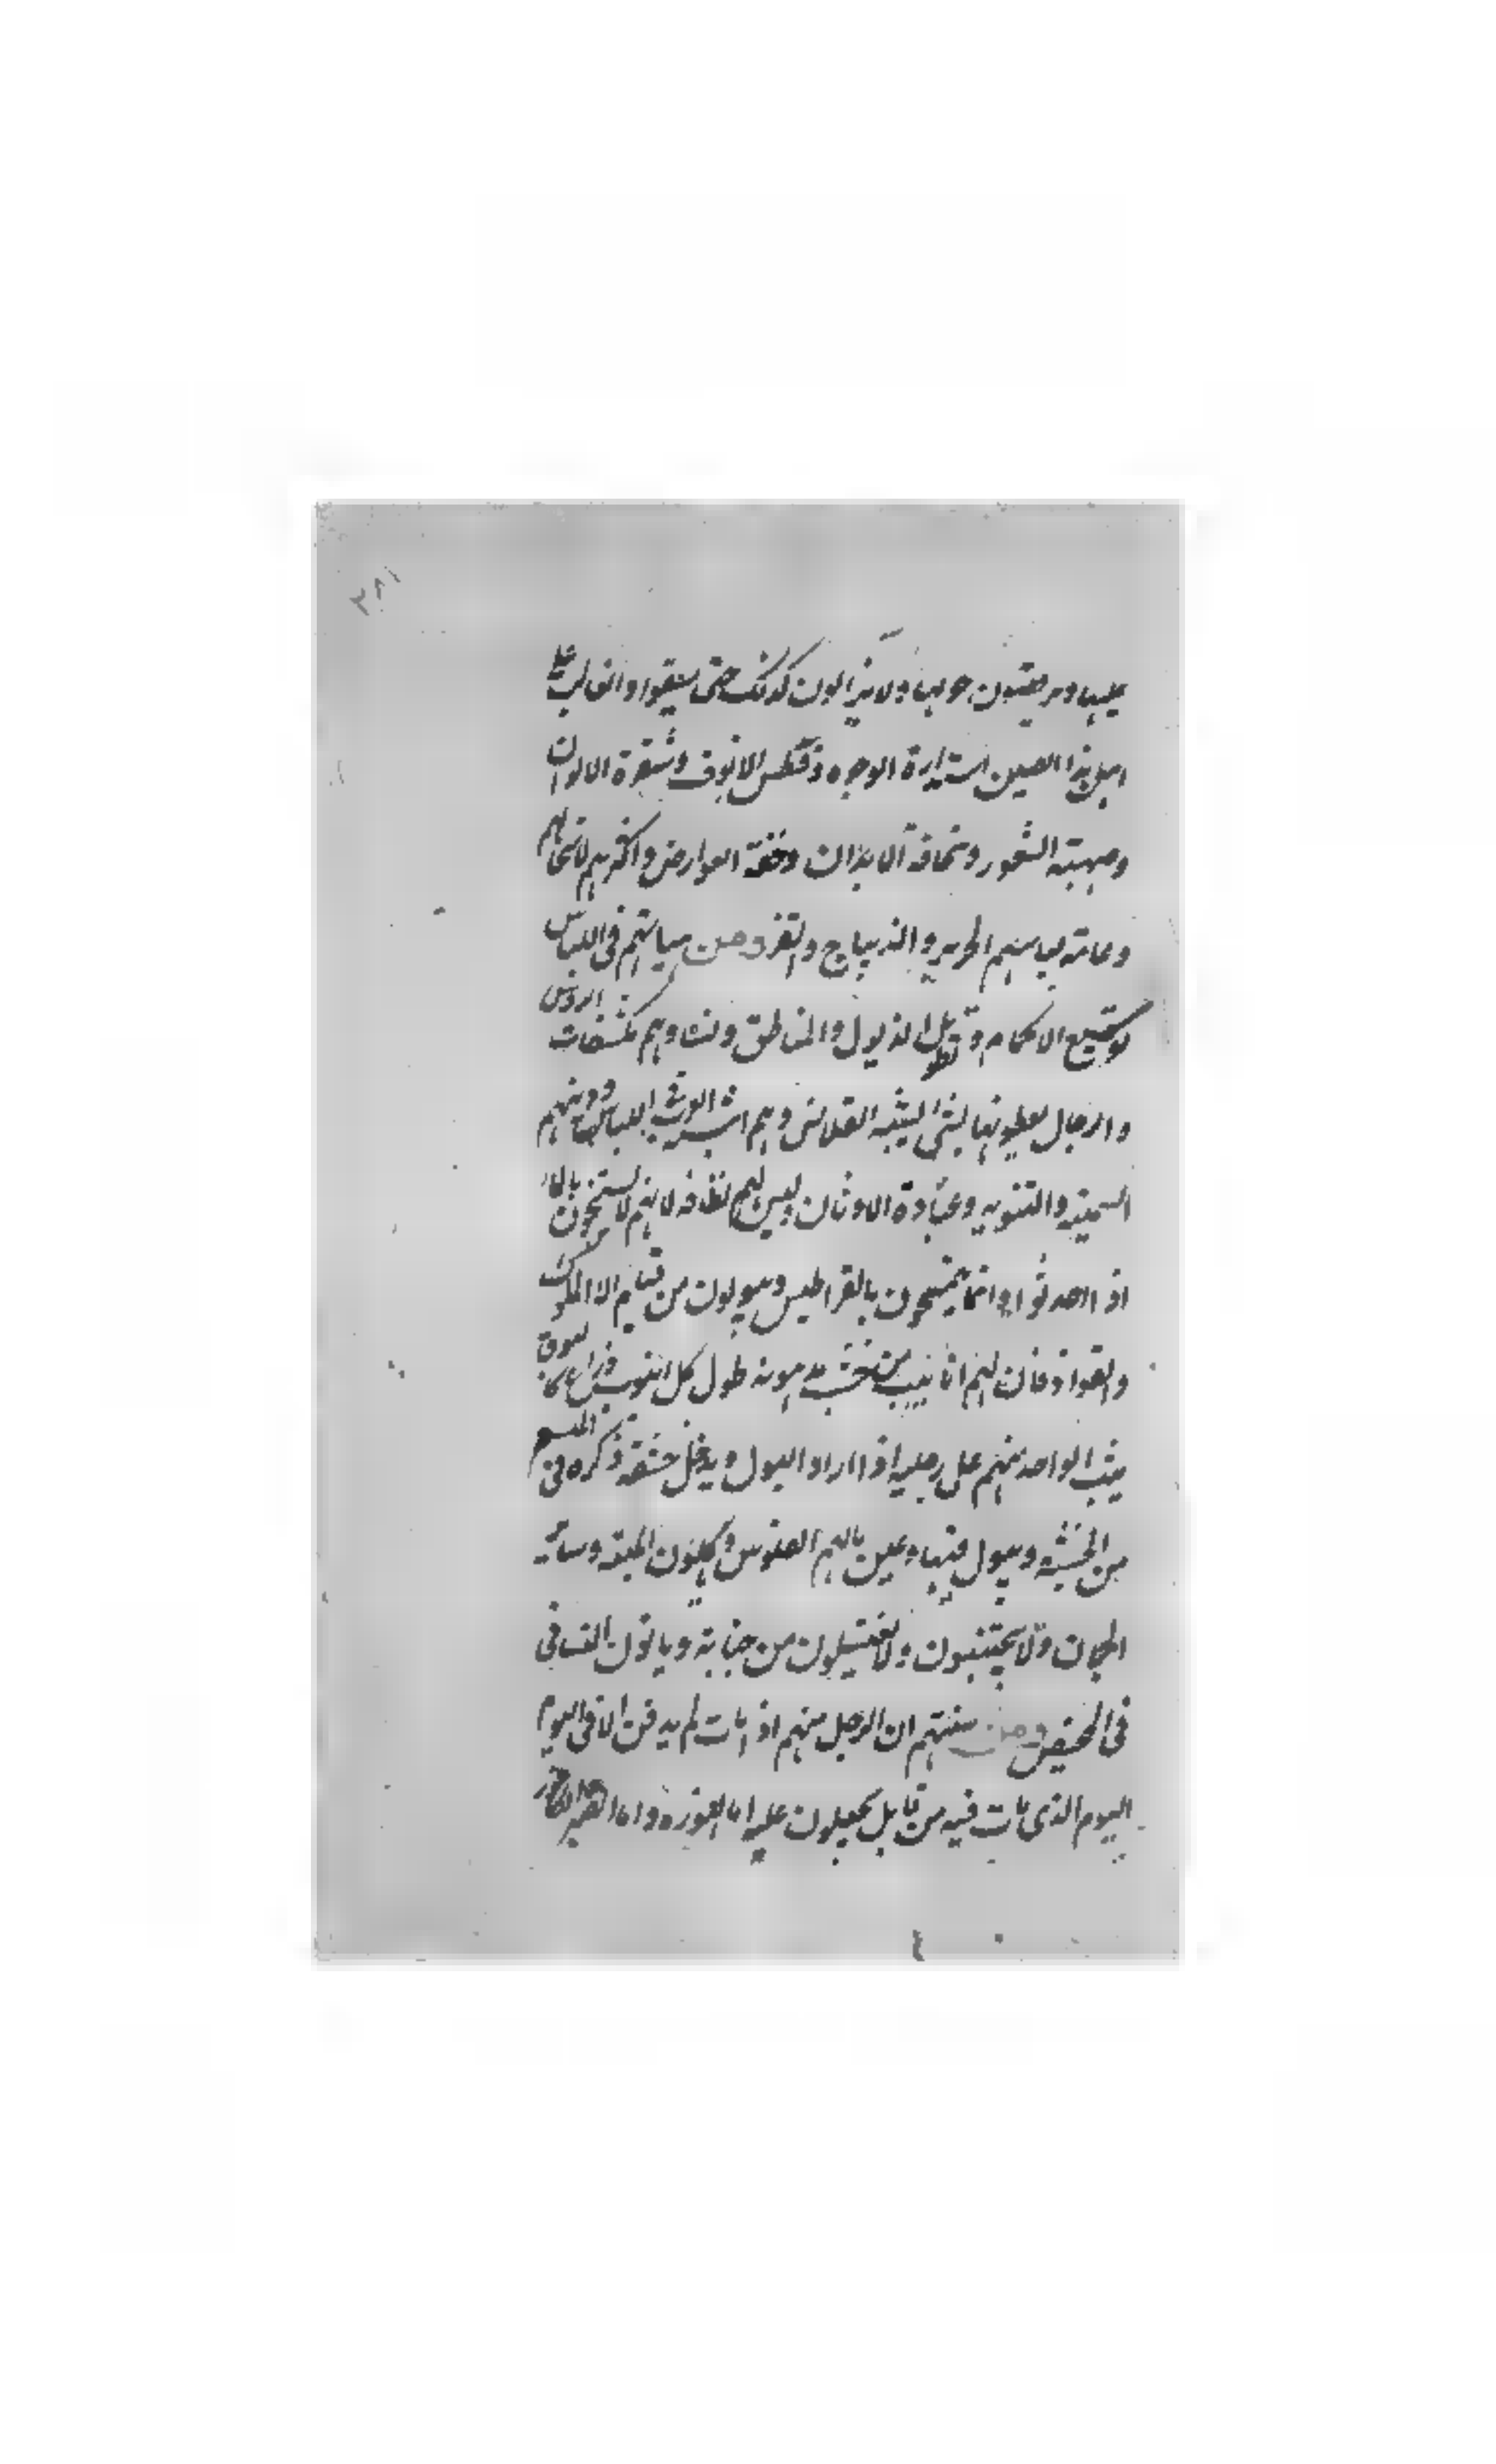 ٢٨١
عليها ويرقصون حولها ولا يزالون كذلك حتى يسقوا والغالب على
اهل هذا الصين استدارة الوجوه وفطس الانوف وشقرة الالوان
وصهبة الشعور ونحافة الابدان وخفة العوارض واكثرهم لا لحى لهم
وعامة لباسهم الحرير والديباج والقز ومن هيأتهم في اللباس
توسيع الاكمام وتطويل الذيول والمناطق ونساوهم مكشفات الرؤس
والرجال يغطونها بشئ يشبه القلانس وهم اشبه العرب في اللباس ودينهم
السمنية والثنوية وعبادة الاوثان وليس لهم نظافة لانهم لا يستنجون بالماء
اذا احدثوا وانما يتمسحون بالقراطيس ويبولون من قيام الا الملوك
والقواد فان لهم انابيب من خشب مدهونة طول كل انبوب ذراع
يثب الواحد منهم على رجليه اذا اراد البول ويدخل حشفة ذكره في
من الخشبة ويبول فيها وعين بالهم القوس وياكلون الميتة وسائر
ولا يجتنبون ولا يغتسلون من جنابة وياتون النسا في
في الحيض ومن سنتهم ان الرجل منهم اذا مات لم يدفن الا في اليوم
اليوم الذي مات فيه من قابل يجعلون عليه اما النورة واما الصبر والكافور